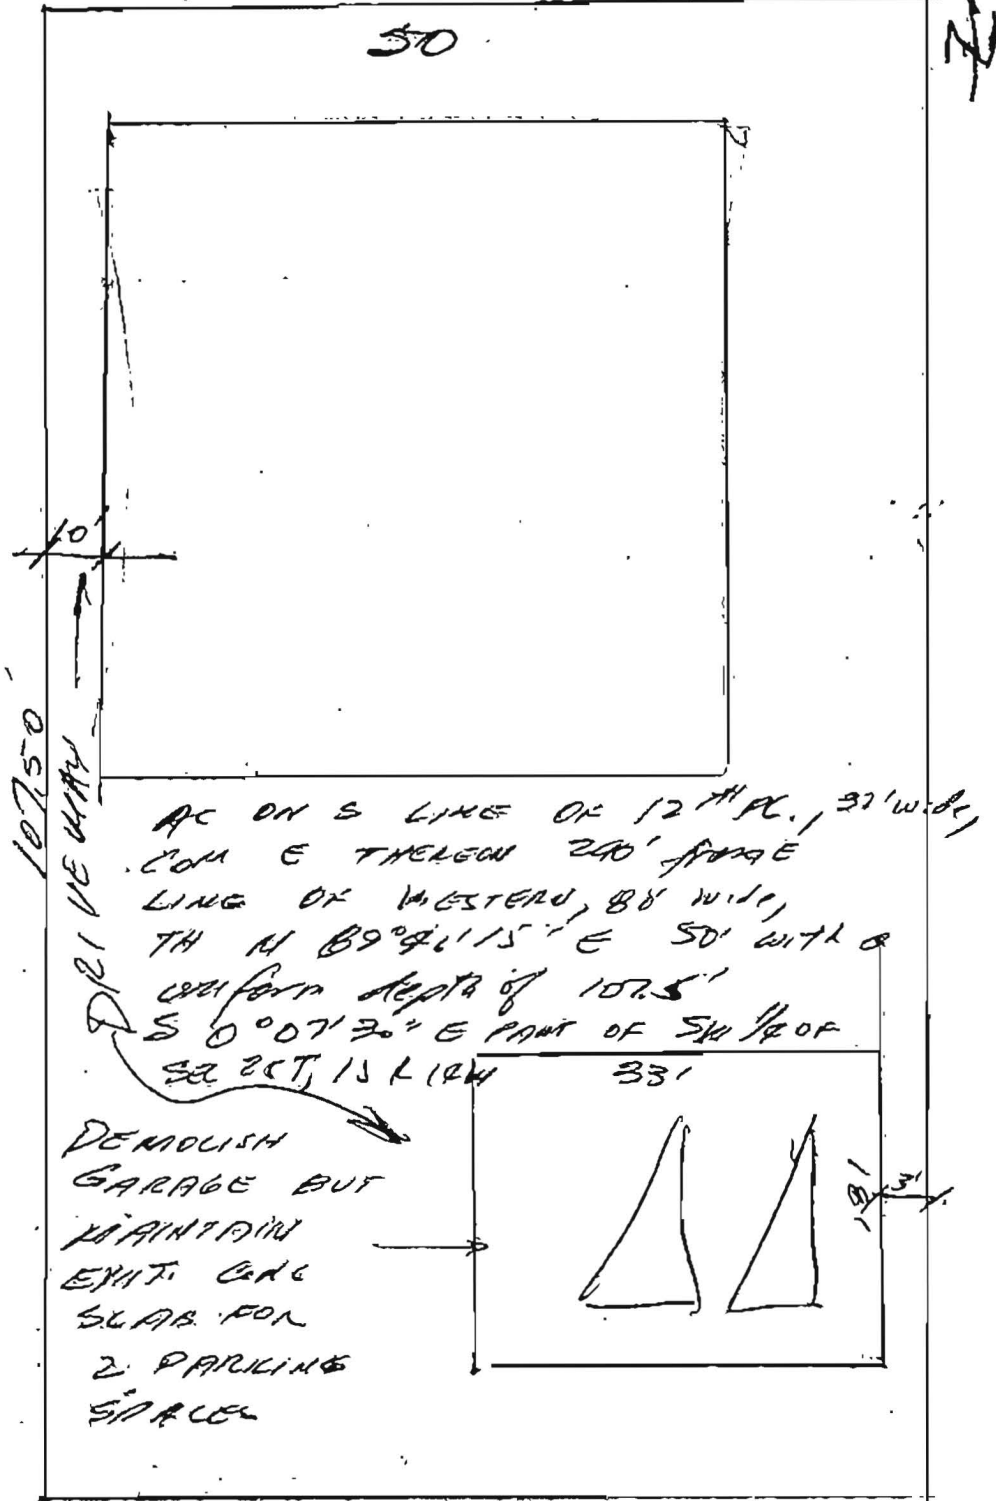 50
N
10'
107.50'
DRIVEWAY
ON S LINE OF 12TH PL.,
COM E THEREON 240'
LINE OF WESTERN, 80' wide,
TH N 89° 15" E 50' with a
uniform depth of 107.5'
S 0°07'30" E PART OF SW 1/4 OF
33'
18'
3'
DEMOLISH
GARAGE BUT
MAINTAIN
EXIST. CONC
SLAB FOR
2 PARKING
SPACES